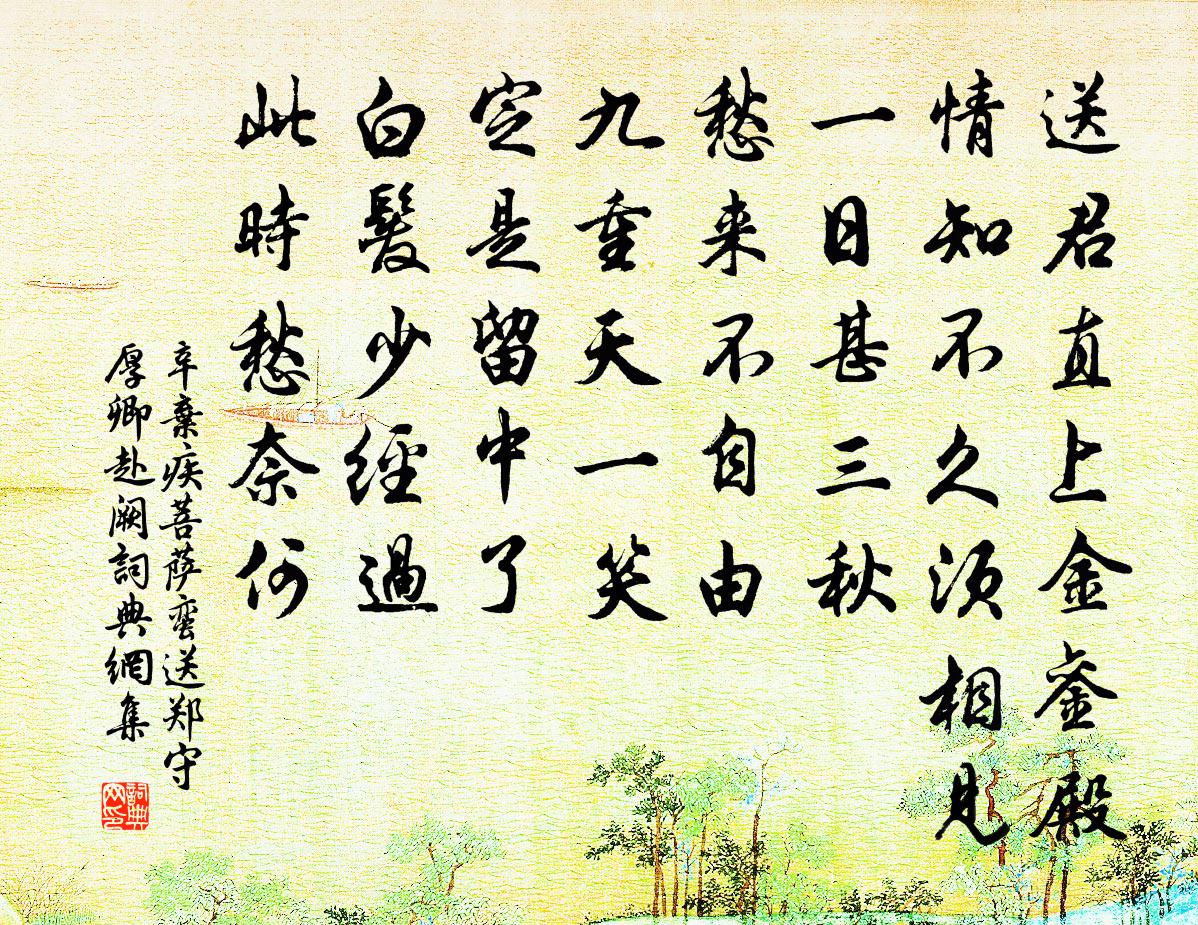 送君直上金銮殿
情知不久须相見
一日甚三秋
愁来不自由
九重天一笑
定是留中了
白髮少經過
此時愁奈何
辛棄疾菩萨蛮送郑守
厚卿赴阙詞典網集
詞典
网印